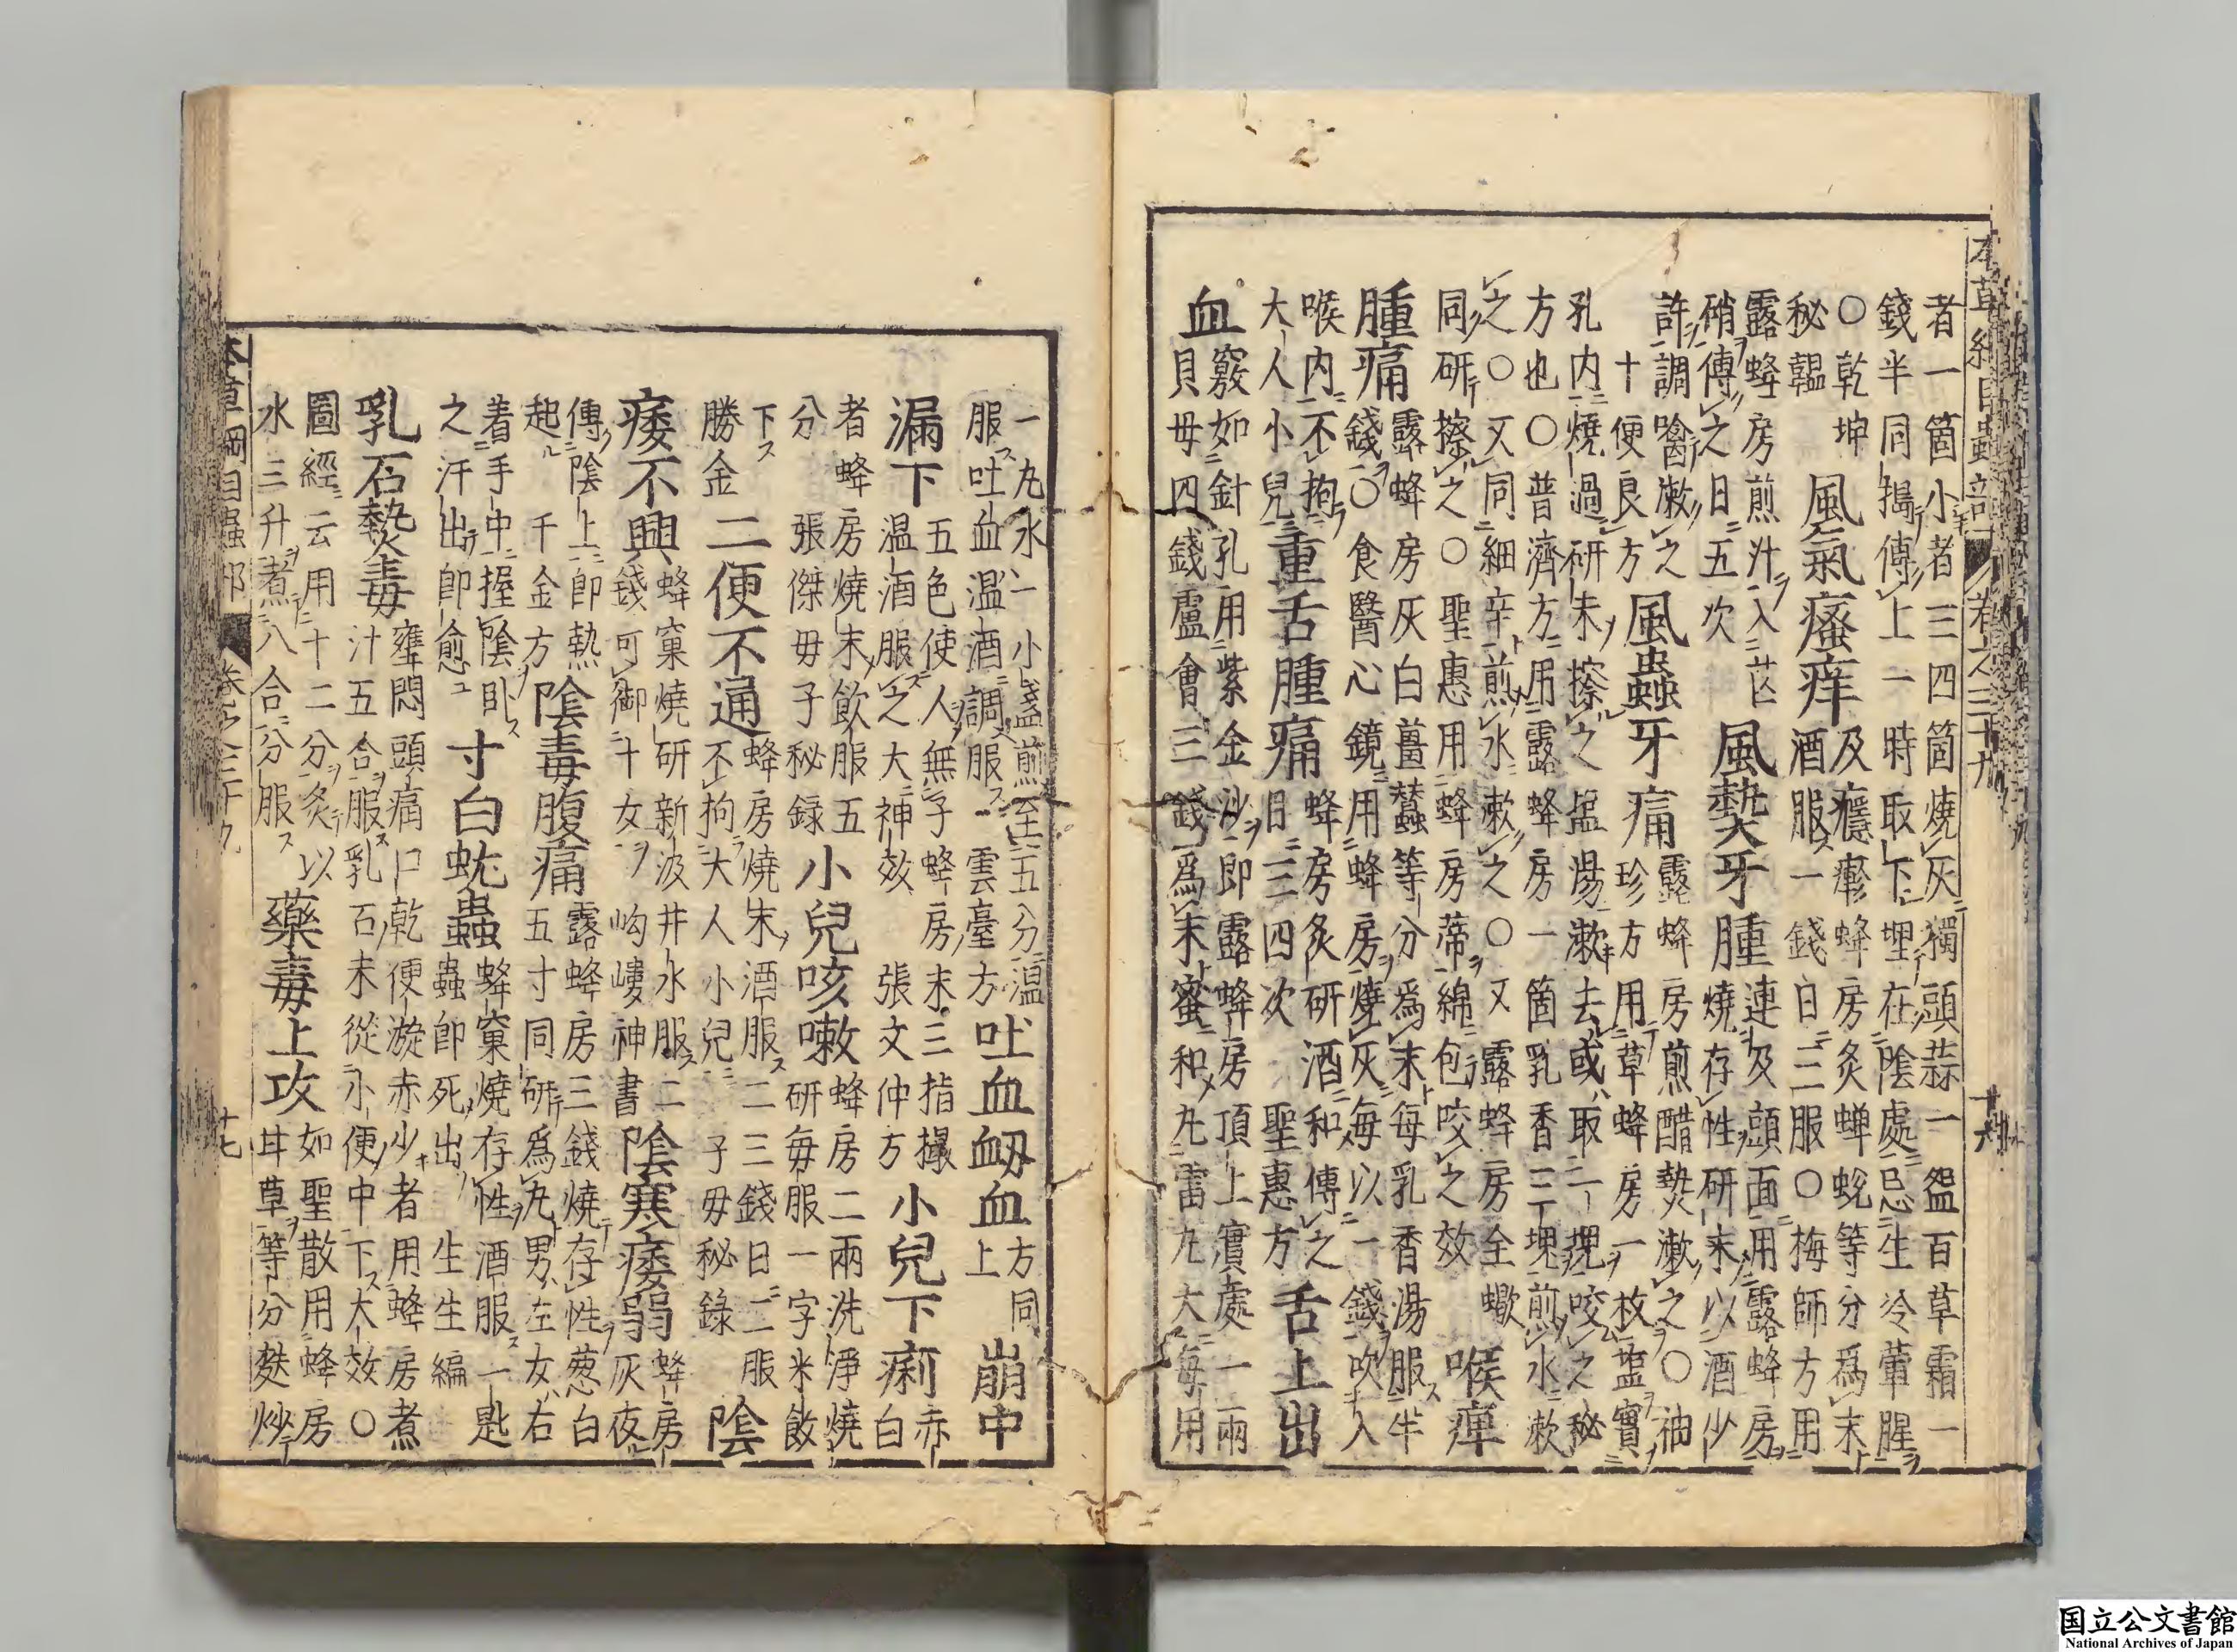 本草綱目蟲部 卷之三十九 十六
者一箇小者三四箇燒灰獨頭蒜一盌百草霜一
錢半同搗傅上一時取下埋在陰處忌生冷葷腥
○乾坤
秘韞
風氣瘙痒
及癮疹蜂房炙蟬蛻等分爲末
酒服一錢日二三服○梅師方用
露蜂房煎汁入芒
硝傅之日五次
風熱牙腫
連及頭面用露蜂房
燒存性研末以酒少
許調噙漱之
十便良方
風蟲牙痛
露蜂房煎醋熱漱之○袖
珍方用草蜂房一枚塩實
孔内燒過研末擦之塩湯漱去或取一塊咬之秘
方也○普濟方用露蜂房一箇乳香三塊煎水漱
之○又同細辛煎水漱之○又露蜂房全蠍
同研擦之○聖惠用蜂房蒂綿包咬之效
喉痺
腫痛
露蜂房灰白薑蠶等分爲末每乳香湯服半
錢○食醫心鏡用蜂房燒灰每以一錢吹入
喉内不拘
大人小兒
重舌腫痛
蜂房炙研酒和傅之
日三四次 聖惠方
舌上出
血
竅如針孔用紫金沙即露蜂房頂上實處一兩
貝母四錢盧會三錢爲末蜜和丸雷丸大每用
一丸水一小盞煎至五分温
服吐血溫酒調服 雲臺方
吐血衂血
方同
上
崩中
漏下
五色使人無子蜂房末三指撮
温酒服之大神效 張文仲方
小兒下痢
赤
白
者蜂房燒末飲服五
分 張傑母子秘録
小兒咳嗽
蜂房二兩洗淨燒
研每服一字米飲
下
勝金
二便不通
蜂房燒末酒服二三錢日二服
不拘大人小兒 子母秘錄
陰
痿不興
蜂窠燒研新汲井水服二
錢可御十女 岣嶁神書
陰寒痿弱
蜂房
灰夜
傅陰上即熱
起 千金方
陰毒腹痛
露蜂房三錢燒存性葱白
五寸同研爲丸男左女右
着手中握陰卧
之汗出即愈
寸白蚘蟲
蜂窠燒存性酒服一匙
蟲即死出 生生編
乳石熱毒
壅悶頭痛口乾便漩赤少者用蜂房煮
汁五合服乳石末從小便中下大效○
圖經云用十二分炙以
水三升煮八合分服
藥毒上攻
如聖散用蜂房
甘草等分麩炒
本草綱目蟲部 卷之三十九 十七
国立公文書館
National Archives of Japan